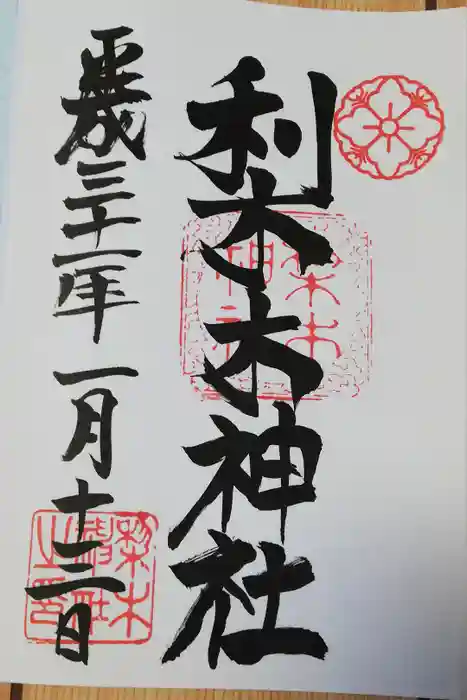 梨木神社
平成三十一年一月十三日
梨木
神社
梨木
神社
之印